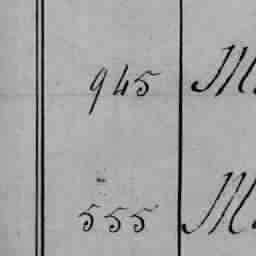 945 M
555 M